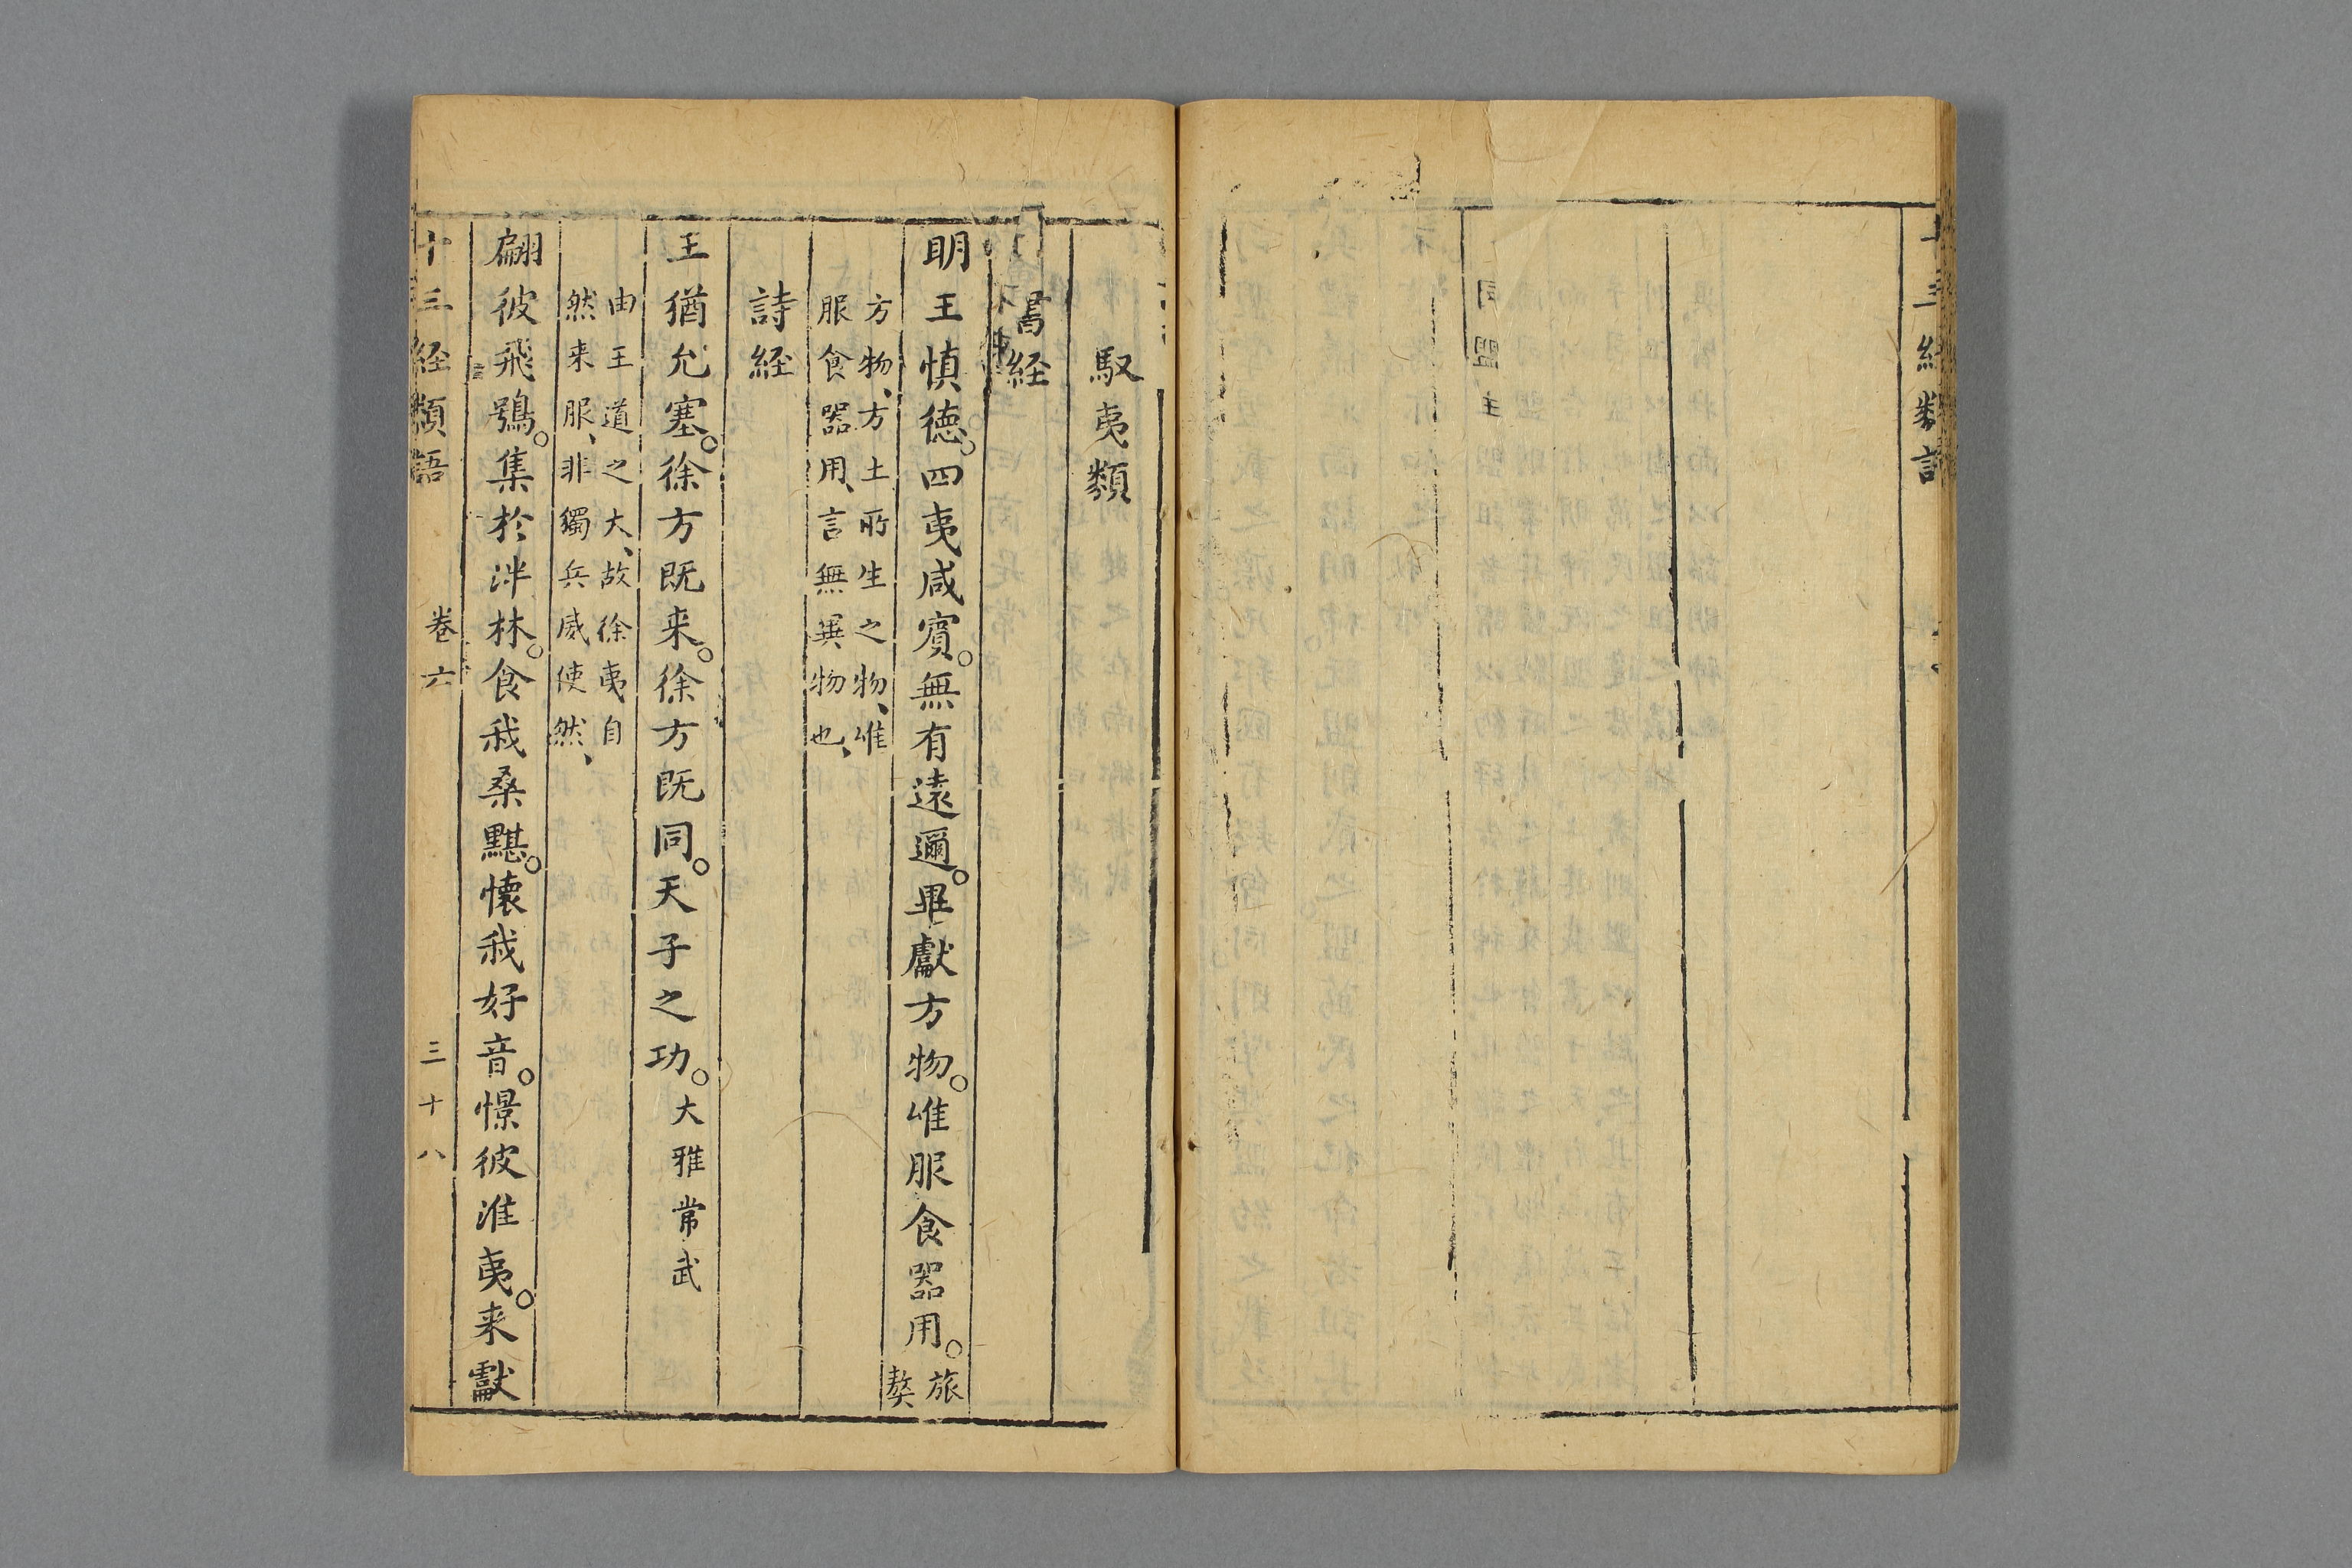 十三経類語
同盟主
馭夷類
書経
明王慎徳。四夷咸賓。無有遠邇。畢獻方物。惟服食器用。旅獒
方物、方土所生之物、惟
服食器用、言無異物也、
詩経
王猶允塞。徐方既来。徐方既同。天子之功。大雅常武
由王道之大、故徐夷自
然来服、非獨兵威使然、
翩彼飛鴞。集於泮林。食我桑黮。懷我好音。憬彼淮夷。来獻
十三経類語 卷六 三十八